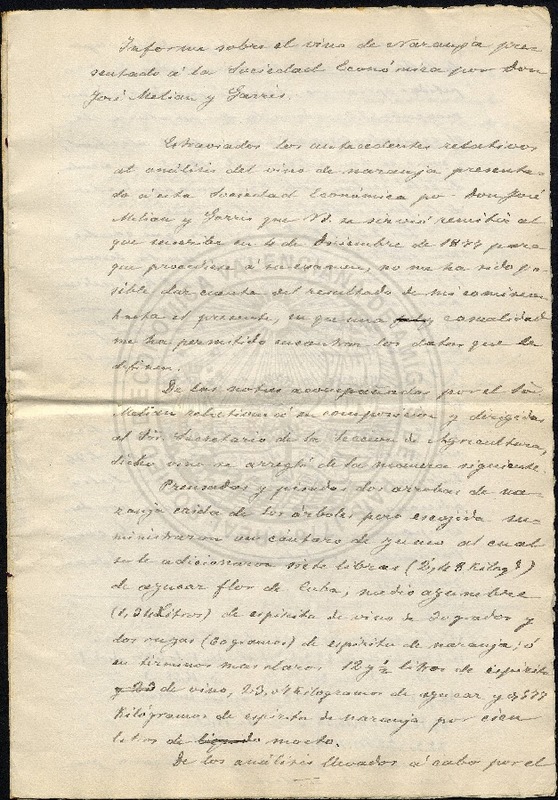 Informe sobre el vino de Naranja pre-
sentado á la Sociedad Económica por Don
José Melian y Garris.
Estraviados los antecedentes relativos
al análisis del vino de naranja presenta-
do á esta Sociedad Económica por Don José
Melian y Garris que Vd. se sirvió remitir al
que suscribe en 4 de Diciembre de 1877 para
que procediese á su examen, no me ha sido po-
sible dar cuenta del resultado de mi comision
hasta el presente, en que una casualidad
me ha permitido encontrar los datos que la
definen.
De las notas acompañadas por el Sor
Melian relativas á su composicion y dirigidas
al Sr. Secretario de la Seccion de Agricultura,
dicho vino se arregló de la manera siguiente.
Prensados y pisados dos arrobas de na-
ranja caida de los árboles pero escojida su-
ministraron un cántaro de zumo al cual
se le adicionaron siete libras
de azucar flor de Cuba, medio azumbre
de espíritu de vino de grados y
dos onzas (60 gramos) de espíritu de naranja; ó
en términos mas claros 12 y ½ litros de espíritu
de vino, 23,04 kilogramos de azucar y
Kilógramos de espíritu de naranja por cien
litros de mosto.
De los análisis llevados á cabo por el